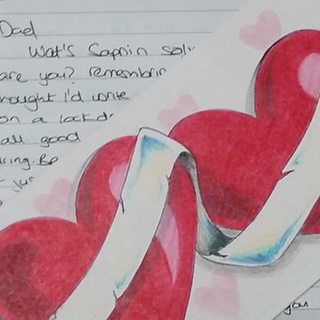 Dad
Wat's Sappnin
are you? remember
thought I'd write
on a lockd
all good
ring. Be
you